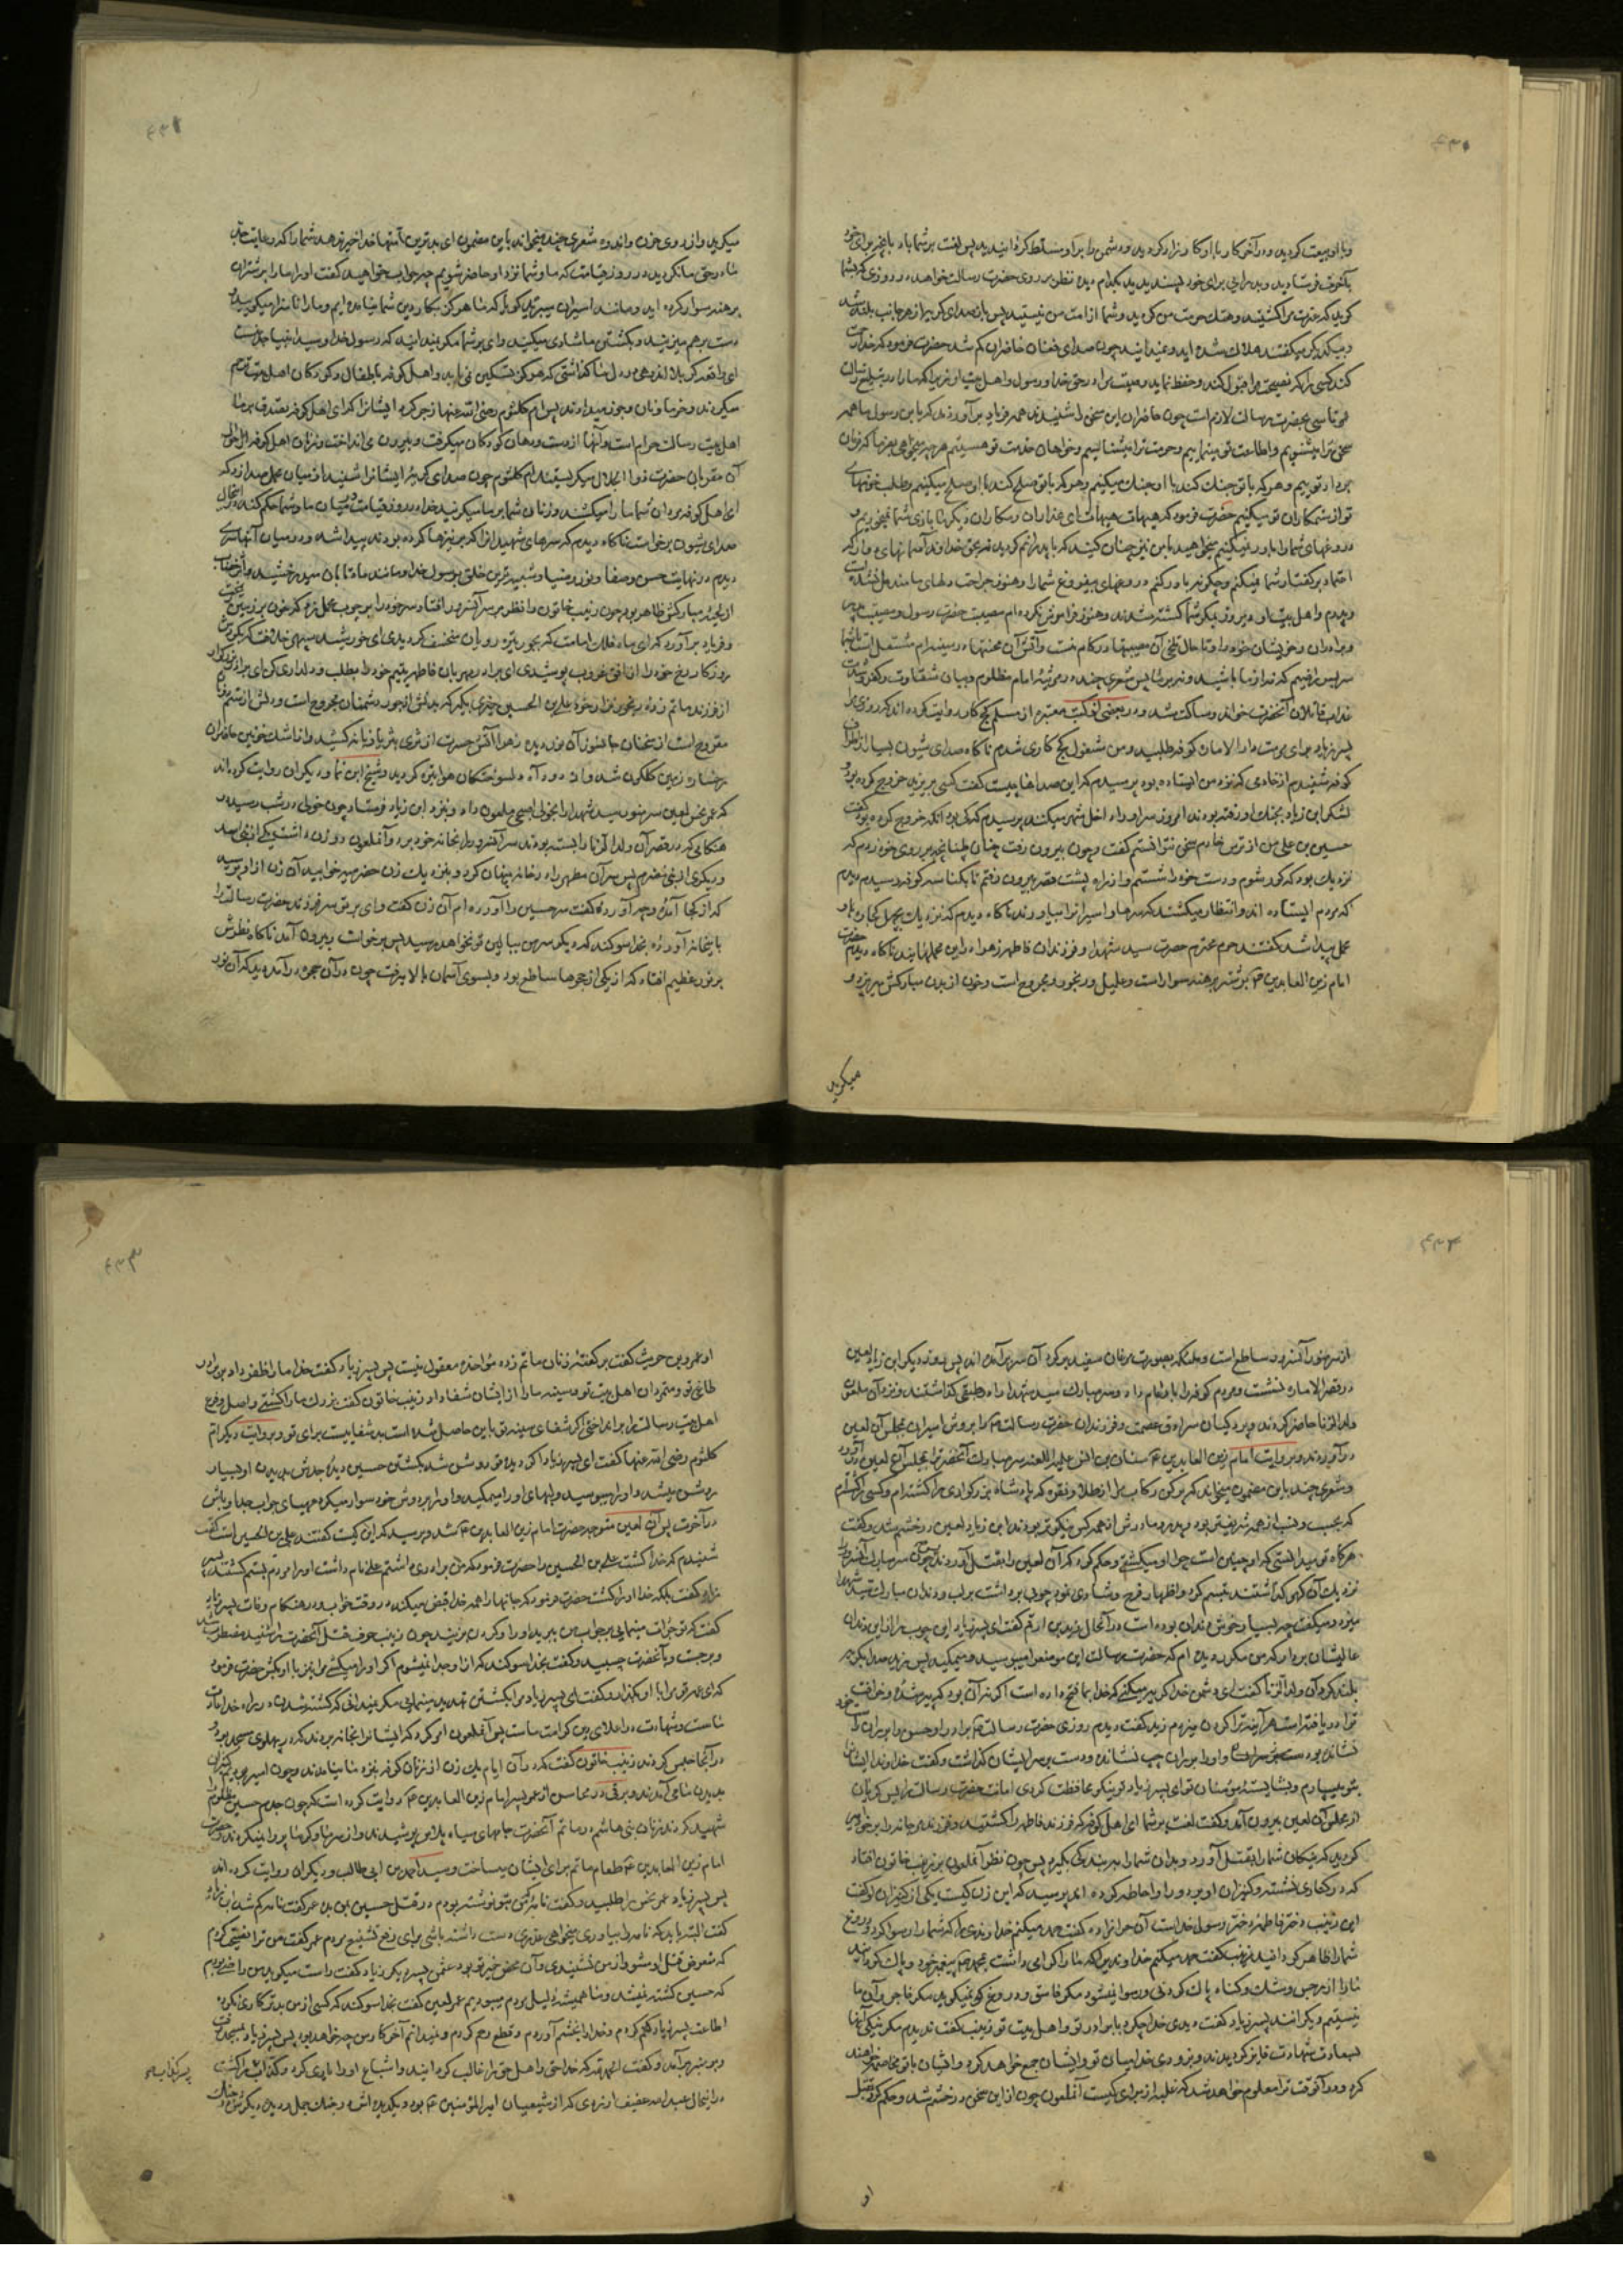 و با او بیعت کردید و در آخر کار با او کارزار کردید و دشمن را بر او مسلط کردانیدید پس لعنت بر شما باد بانچه برای خود
بآخرت فرستادید و بد رائی برای خود پسندیدید بکدام دیده نظر بر روی حضرت رسالت خواهید کرد در روزی که بشما
کوید که عترت مرا کشتید و هتک حرمت من کردید و شما از امت من نیستید پس باز صدای کریه از هر جانب بلند شد
و بیکدیکر میکفتند هلاک شده اید و نمیدانید چون صدای فغان حاضران کم شد حضرت فرمود که خدا رحمت
کند کسی را که نصیحت مرا قبول کند و حفظ نماید وصیت مرا در حق خدا و رسول و اهل بیت او زیرا که ما را در تبلیغ رسالت
تاسی بحضرت رسالت لازم است چون حاضران این سخن را شنیدند همه فریاد برآوردند که یا بن رسول ما همه
سخن ترا میشنویم و اطاعت تو مینمائیم و حرمت ترا میشناسیم و خواهان خدمت تو هستیم هر چه میخواهی بفرما که فرمان
بردار توییم و هر که با تو جنک کند با او جنک میکنیم و هر که با تو صلح کند با او صلح میکنیم و طلب خونهای
تو از ستمکاران تو میکنیم حضرت فرمود که هیهات هیهات ای غداران و مکاران دیکر ما بازی شما نمیخوریم و
دروغهای شما را باور نمیکنیم میخواهید با من نیز چنان کنید که با پدرانم کردید نه بحق خداوند آسمانهای دوار که
اعتماد بر کفتار شما نمیکنم و چکونه باور کنم دروغهای بیفروغ شما را و هنوز جراحت دلهای ما مندمل نشده است
و پدرم و اهل بیت او دیروز بمکر شما کشته شدند و هنوز فراموش نکرده ام مصیبت حضرت رسول و مصیبت پدر
و برادران و خویشان خود را و تا حال تلخی آن مصیبتها در کام منست و آتش آن محنتها در سینه ام مشتعل است
سر بسر راضیم که نه از ما باشید و نه بر ما پس شعری چند در مرثیه امام مظلوم و بیان شقاوت و کفر و شدت
عذاب قاتلان آنحضرت خواند و ساکت شد و در بعضی از کتب معتبره از مسلم کچ کار روایت کرده اند که روزی مرا
پسر زیاد برای مرمت دار الاماره کوفه طلبید و من مشغول کچ کاری شدم ناکاه صدای شیون بسیار از اطراف
کوفه شنیدم از خادمی که نزد من ایستاده بود پرسیدم که این صداها چیست کفت کسی بر یزید خروج کرده بود و
لشکر ابن زیاد بجنک او رفته بودند امروز سر او را داخل شهر میکنند پرسیدم که کی بود آنکه خروج کرده بود کفت
حسین بن علی من از ترس خادم سخن نتوانستم کفت و چون بیرون رفت چنان طپانچه بر روی خود زدم که
نزدیک بود که کور شوم و دست خود را شستم و از راه پشت قصر بیرون رفتم تا بکناسه کوفه رسیدم دیدم
که مردم ایستاده اند و انتظار میکشند که سرها و اسیرانرا بیاورند ناکاه دیدم که نزدیک بچهل کجاوه و
محمل پیدا شد کفتند حرم محترم حضرت سید شهدا و فرزندان فاطمه زهرا در این محملهایند ناکاه دیدم حضرت
امام زین العابدین ۴ بر شتر برهنه سوار است و علیل و رنجور و مجروح است و خون از بدن مبارکش میریزد و
میکرید
میکرید و از روی حزن و اندوه شعری چند میخواند باین مضمون ای بدترین امتها خدا خیر ندهد شما را که رعایت جد
ما در حق ما نکردید در روز قیامت که ما و شما نزد او حاضر شویم چه جواب خواهید کفت او را ما را بر شتران
برهنه سوار کرده اید و مانند اسیران میبرید کویا که ما هرکز بکار دین شما نیامده ایم و ما را ناسزا میکویید و
دست بر هم میزنید و بکشتن ما شادی میکنید وای بر شما مکر نمیدانید که رسول خدا و سید انبیا جد منست
ای واقعه کربلا اندوهی در دل ما کذاشتی که هرکز تسکین نمی یابد و اهل کوفه باطفال و کودکان اهل بیت ترحم
میکردند و خرما و نان و جوز میدادند پس ام کلثوم رضی الله عنها زجر کرد ایشانرا که ای اهل کوفه تصدق بر ما
اهل بیت رسالت حرام است و آنها از دست و دهان کودکان میکرفت و بیرون می انداخت و زنان اهل کوفه بر احوال
آن مقربان حضرت ذو الجلال میکریستند ام کلثوم چون صدای کریه ایشانرا شنید از میان محمل صدا زد که
ای اهل کوفه مردان شما ما را میکشند و زنان شما بر ما میکریند خدا در روز قیامت در میان ما و شما حکم کند در انحال
صدای شیون برخاست ناکاه دیدم که سرهای شهیدانرا که بر نیزها کرده بودند پیدا شد و در میان آنها سری
دیدم در نهایت حسن و صفا و نور و ضیا و شبیه ترین خلق برسول خدا و مانند ماه تابان میدرخشید و اثر خضاب
از لحیه مبارکش ظاهر بود چون زینب خاتون را نظر بر سر آن سرور افتاد سر خود را بر چوب محمل زد که خون بر زمین ریخت
و فریاد برآورد که ای ماه فلک امامت که بجور تیره دوران منخسف کردیدی ای خورشید سپهر خلافت که کوتهی
روزکار رخ خود را در افق غروب پوشیدی ای برادر مهربان فاطمه یتیم خود را بطلب و دلداری کن ای برادر بزرکوار
از فرزند ماتم زده رنجور زار خود علی بن الحسین خبری بکیر که بدنش از جور دشمنان مجروح است و دلش از ستم
مقروح است از سخنان جانسوز آن نور دیده زهرا آتش حسرت از ثری بثریا زبانه کشید و از اشک خونین حاضران
رخساره زمین کلکون شد و از دود آه دلسوختکان هوا تیره کردید و شیخ ابن نما و دیکران روایت کرده اند
که عمر نحس لعین سر منور سید شهدا را بخولی اصبحی ملعون داد و بنزد ابن زیاد فرستاد چون خولی در شب رسید در
هنکامی که در قصر آن ولد الزنا را بسته بودند سر آن سرور را بخانه خود برد و آن ملعون دو زن داشت یکی از بنی اسد
و دیکری از بنی خضرم پس سر آن مطهر را در خانه پنهان کرد و بنزدیک زن حضرمیه خوابید آن زن از او پرسید
که از کجا آمده و چه آورده کفت سر حسین را آورده ام آن زن کفت وای بر تو سر فرزند حضرت رسالت را
باینخانه آورده بخدا سوکند که دیکر سر من ببالین تو نخواهد رسید پس برخواست و بیرون آمد ناکاه نظرش
بر نور عظیم افتاد که از یکی از حجرها ساطع بود و بسوی آسمان بالا میرفت چون در آن حجره در آمد دید که آن نور
از سر منور آن سرور ساطع است و ملائکه بصورت مرغان سفید بر کرد آن سر برآمده اند پس روز دیکر ابن زیاد لعین
در قصر الاماره نشست و مردم کوفه را بار عام داد و سر مبارک سید شهدا را در طبقی کذاشتند و نزد آن ملعون
ولد الزنا حاضر کردند و پردکیان سرادق عصمت و فرزندان حضرت رسالت ۴ را بروش اسیران بمجلس آن لعین
در آوردند و بروایت امام زین العابدین ۴ سنان بن انس علیه اللعنه سر مبارک آنحضرت را بمجلس آن لعین در آورد
و شعری چند باین مضمون میخواند که پر کن رکاب مرا از طلا و نقره که پادشاه بزرکواری را کشته ام و کسی را کشته ام
که بحسب و نسب از همه شریفتر بود و پدر و مادرش از همه کس نیکوتر بودند ابن زیاد لعین در خشم شد و کفت
هرکاه تو میدانستی که او چنین است چرا او را میکشتی و حکم کرد که آن لعین را بقتل آوردند چون سر مبارک آن سرور را
نزدیک آن کبر کذاشتند تبسم کرد و اظهار فرح و شادی نمود چوبی در دست بر لب و دندان مبارک سید شهدا
میزد و میکفت چه بسیار خوش دندان بوده است در آنحال زید بن ارقم کفت ای پسر زیاد این چوب را از این دندان
عالیشان بردار که من مکرر دیده ام که حضرت رسالت این موضع را میبوسید و میمکید پس زید صدا بکریه
بلند کرد آن ولد الزنا کفت ای دشمن خدا کریه میکنی که خدا بما فتح داده است اکر نه آن بود که پیر شده و خرافت
ترا دریافته است هر آینه ترا کردن میزدم زید کفت دیدم روزی حضرت رسالت ۴ برادر او حسن را بر ران راست خود
نشانده بود و او را بر ران چپ نشانده و دست بر سر ایشان کذاشت و کفت خداوندا ایشانرا
بتو میسپارم و بشایسته مؤمنان تو ای پسر زیاد تو نیکو محافظت کردی امانت حضرت رسالت را پس کریان
از مجلس آن لعین بیرون آمد و کفت لعنت بر شما ای اهل کوفه که فرزند فاطمه را کشتید و فرزند مرجانه را بر خود امیر
کردید که نیکان شما را بقتل آورد و بدان شما را ببندکی بکیرد پس چون نظر آن ملعون بر زینب خاتون افتاد
که در کناری نشسته و کنیزان او بر دور او احاطه کرده اند پرسید که این زن کیست یکی از کنیزان او کفت
این زینب دختر فاطمه دختر رسول خداست آن حرامزاده کفت حمد میکنم خداوندی را که شما را رسوا کرد و دروغ
شما را ظاهر کردانید زینب کفت حمد میکنم خداوندی را که ما را کرامی داشت بمحمد ۴ پیغمبر خود و پاک کردانید
ما را از رجس و شک و کناه پاک کردنی و رسوا نمیشود مکر فاسق و دروغ نمیکوید مکر فاجر و آن ما
نیستیم و دیکرانند پسر زیاد کفت دیدی خدا چه کرد با برادر تو و اهل بیت تو زینب کفت ندیدم مکر نیکی آنها
بسعادت شهادت فایز کردیدند و بزودی خدا میان تو و ایشان جمع خواهد کرد و ایشان با تو مخاصمه خواهند
کرد و در آنوقت ترا معلوم خواهد شد که غلبه از برای کیست آن ملعون چون از این سخن در خشم شد و حکم کرد بقتل
او
او عمرو بن حریث کفت بر کفته زنان ماتم زده مؤاخذه معقول نیست پس پسر زیاد کفت خدا ما را ظفر داد بر برادر
طاغی تو و متمردان اهل بیت تو و سینه ما را از ایشان شفا داد زینب خاتون کفت بزرک ما را کشتی و اصل و فرع
اهل بیت رسالت را برانداختی اکر شفای سینه تو باین حاصل شده است بد شفاییست برای تو و بروایت دیکر ام
کلثوم رضی الله عنها کفت ای پسر زیاد اکر دیده تو روشن شد بکشتن حسین دیده جدش بدیدن او بسیار
روشن میشد و او را میبوسید و لبهای او را میمکید و او را بر دوش خود سوار میکرد مهیای جواب جد او باش
در آخرت پس آن لعین متوجه حضرت امام زین العابدین ۴ شد و پرسید که این کیست کفتند علی بن الحسین است کفت
شنیدم که خدا کشت علی بن الحسین را حضرت فرمود که من برادری داشتم علی نام داشت او را مردم بستم کشتند پسر
زیاد کفت بلکه خدا او را کشت حضرت فرمود که جانها را همه خدا قبض میکند در وقت خواب و در هنکام وفات پسر زیاد
کفت که تو جرات مینمایی بر جواب من ببرید او را و کردن بزنید چون زینب حرف قتل آنحضرت را شنید مضطرب شد
و برجست و بآنحضرت چسبید و کفت بخدا سوکند که از او جدا نمیشوم اکر او را میکشی مرا نیز با او بکش حضرت فرمود
که ای عمه تو مرا با او بکذار و کفت ای پسر زیاد مرا بکشتن تهدید مینمایی مکر نمیدانی که کشته شدن در راه خدا عادت
ماست و شهادت در اعلای دین کرامت ماست پس آن ملعون امر کرد که ایشانرا بخانه بردند که در پهلوی مسجد بود و
در آنجا حبس کردند زینب خاتون کفت که در آن ایام یک زن از زنان کوفه بنزد ما نیامدند و چون اسیر بودیم کنیزان
بدیدن ما می آمدند و برقی در محاسن از عمر پسر امام زین العابدین ۴ روایت کرده است که چون جدم حسین مظلوم را
شهید کردند زنان بنی هاشم در ماتم آنحضرت جامهای سیاه پلاس پوشیدند و از سرما و کرما پروا نمیکردند و حضرت
امام زین العابدین ۴ طعام ماتم برای ایشان میساخت و سید احمد بن ابی طالب و دیکران روایت کرده اند
پس پسر زیاد عمر نحس را طلبید و کفت نامه که من بتو نوشته بودم در قتل حسین بمن بده عمر کفت نامه کم شد ابن زیاد
کفت البته باید که نامه را بیاوری میخواهی عذری در دست داشته باشی برای رفع تشنیع مردم عمر کفت من ترا نصیحتی کردم
که متعرض قتل او مشو و از من نشنیدی و آن محض خیر تو بود عثمن پسر دیکر زیاد کفت راست میکوید من راضی بودم
که حسین کشته نمیشد و ما همیشه ذلیل مردم میبودیم عمر لعین کفت بخدا سوکند که کسی از من بدتر کاری نکرد
اطاعت پسر زیاد کردم و خدا را بخشم آوردم و قطع رحم کردم و نمیدانم آخر کار من چه خواهد بود پس پسر زیاد بمسجد رفت
و بر منبر برآمد و کفت الحمد لله که خدا حق و اهل حق را غالب کردانید و اشیاع او را یاری کرد و کذاب را کشت
پسر کذاب
در اینحال عبدالله عفیف ازدی که از شیعیان امیر المؤمنین ۴ بود و یکدیده اش در جنک جمل و دیده دیکرش در جنک